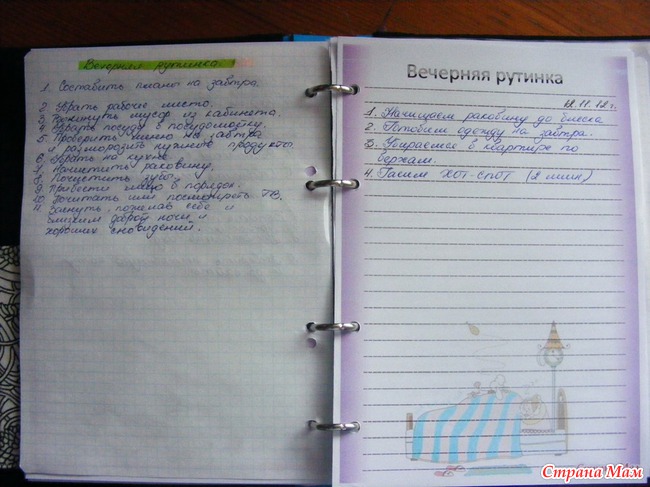 Вечерняя рутинка.
1. Составить план на завтра.
2. Убрать рабочее место.
3. Выкинуть мусор из кабинета.
4. Убрать посуду в посудомойку.
5. Проверить меню на завтра
и разморозить нужные продукты
6. Убрать на кухне.
7. Начистить раковину.
8. Почистить зубы.
9. Привести лицо в порядок.
10. Почитать или посмотреть ТВ.
11. Заснуть, пожелав себе и
близким доброй ночи и
хороших сновидений.
Вечерняя рутинка
12.11.12 г.
1. Начищаем раковину до блеска
2. Готовим одежду на завтра.
3. Убираемся в квартире по
верхам.
4. Гасим ХОТ-СПОТ (2 мин)
Страна Мам